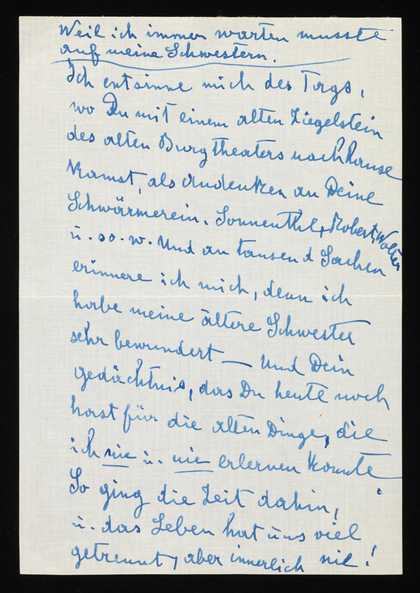 Weil ich immer warten musste
auf meine Schwestern.
Ich entsinne mich des Tags,
wo Du mit einem alten Ziegelstein
des alten Burgtheaters nachhause
kamst, als Andenken an Deine
Schwärmerein. Sonnenthl, Robert, Wolter
u. so. w. Und an tausend Sachen
erinnere ich mich, denn ich
habe meine ältere Schwester
sehr bewundert — Und Dein
gedächtnis, das Du heute noch
hast für die alten Dinge, die
ich nie u. nie erlernen konnte.
So ging die Zeit dahin,
u. das Leben hat uns viel
getrennt, aber innerlich nie!